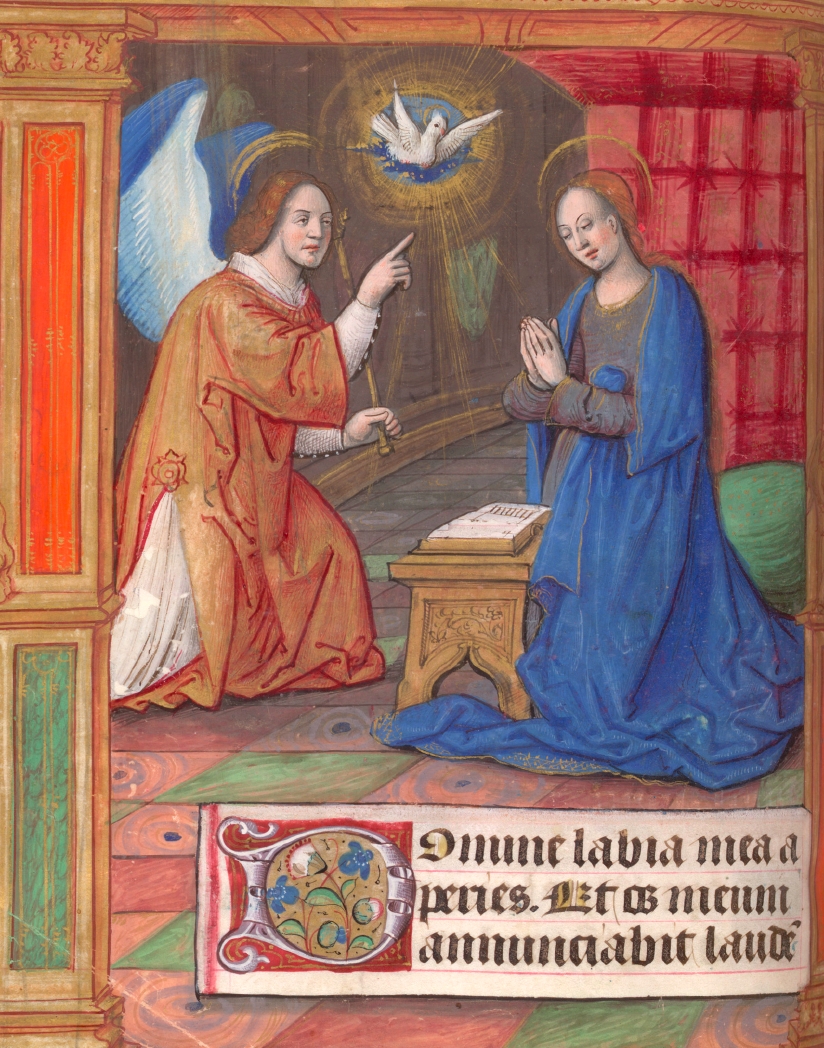 Domine labia mea a
peries. Et os meum
annunciabit laudē